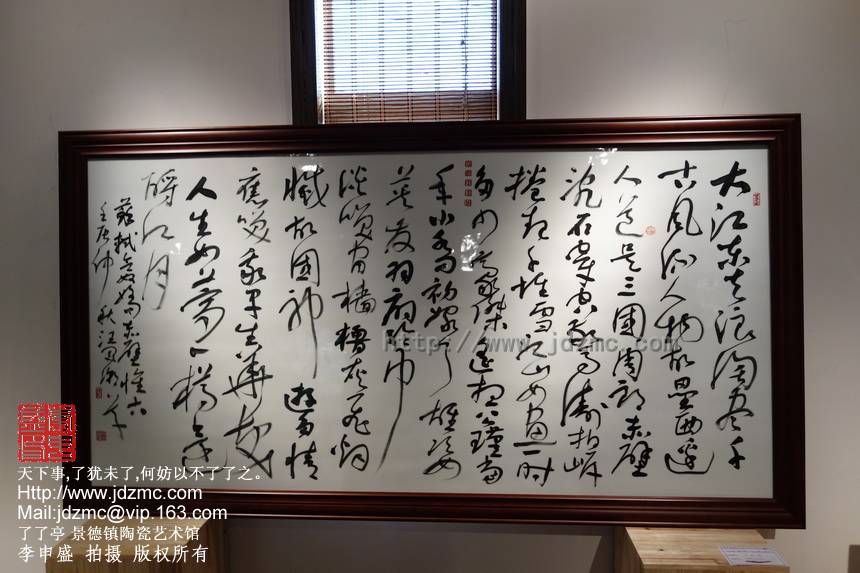 大江東去浪淘盡千
古風流人物故壘西邊
人道是三國周郎赤壁
亂石穿空驚濤拍岸
捲起千堆雪江山如畫一時
多少豪傑遙想公瑾當
年小喬初嫁了雄姿
英發羽扇綸巾
談笑間檣櫓灰飛煙
滅故國神遊多情
應笑我早生華髮
人生如夢一樽還
酹江月
蘇軾念奴嬌赤壁懷古
仲秋
http://www.jdzmc.com
天下事,了犹未了,何妨以不了了之。
Http://www.jdzmc.com
Mail:jdzmc@vip.163.com
了了亭 景德镇陶瓷艺术馆
李申盛 拍摄 版权所有